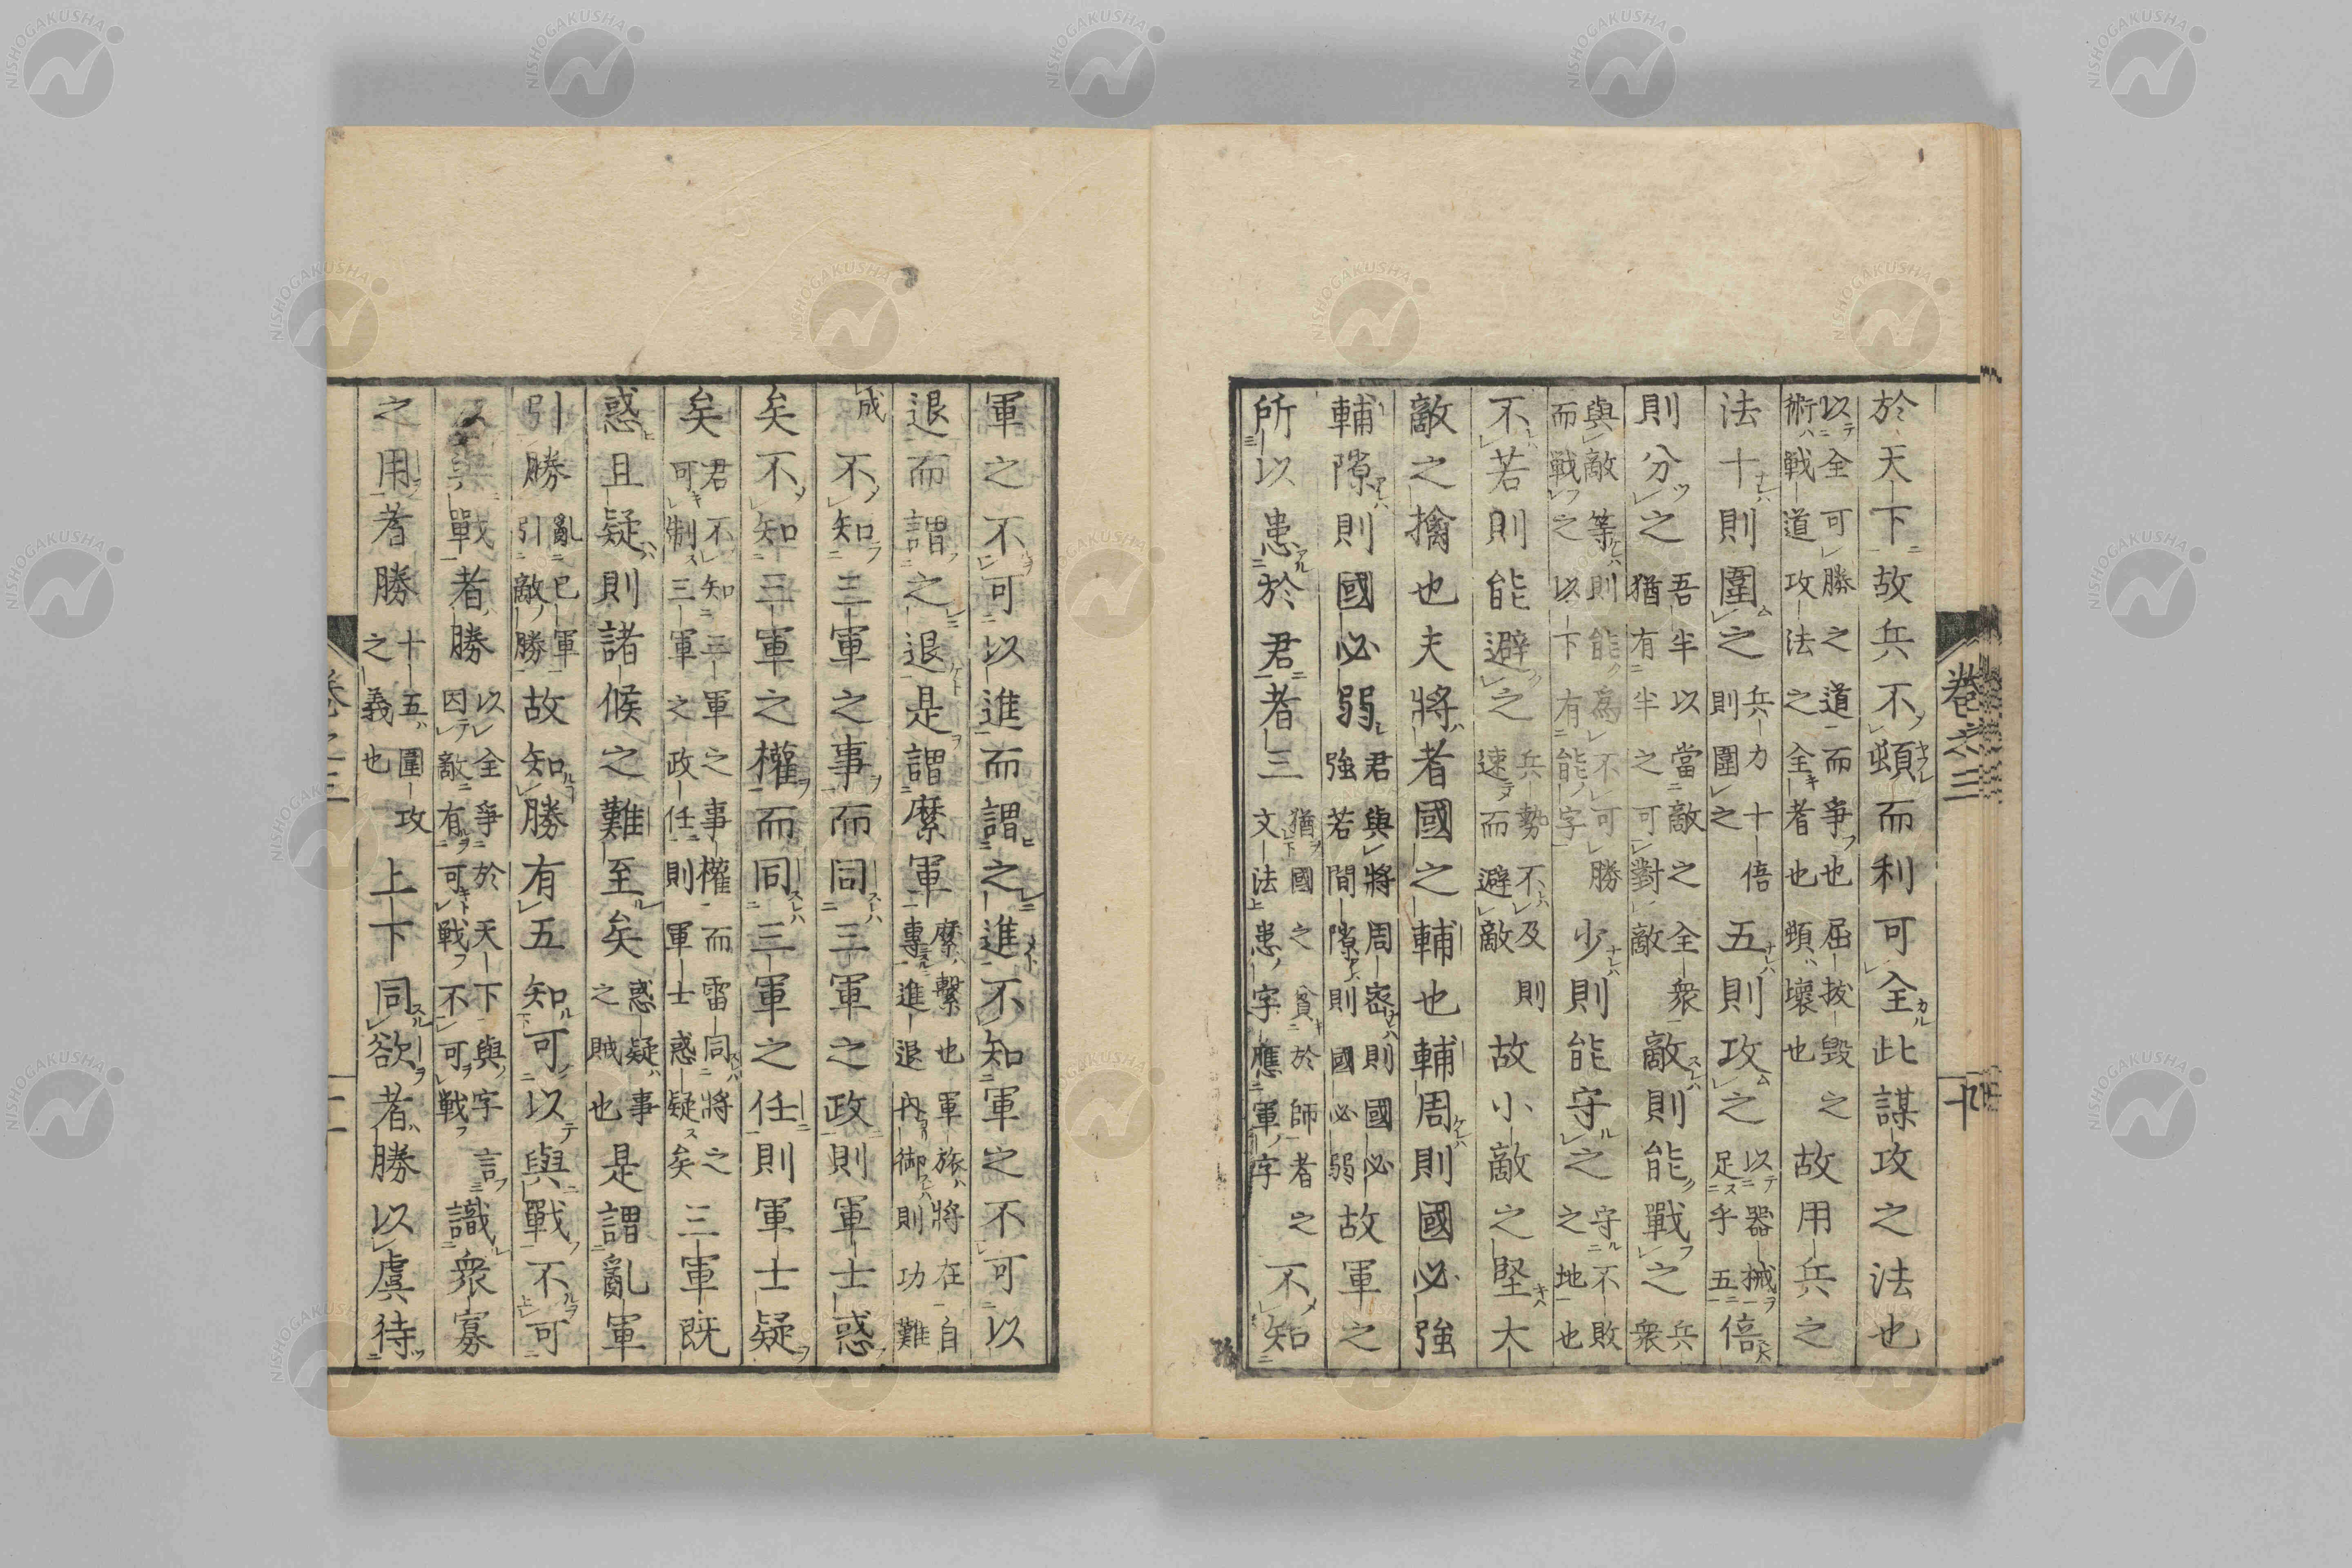 卷之三
於天下故兵不頓而利可全此謀攻之法也
以全可勝之道而爭也屈拔毀之
術戰道攻法之全者也頓壞也
故用兵之
法十則圍之
兵力十倍
則圍之
五則攻之
以器械
足乎五
倍
則分之
吾半以當敵之全衆
猶有半之可對敵
敵則能戰之
兵
衆
與敵等則能為不可勝
而戰之以下有能字
少則能守之
守不敗
之地也
不若則能避之
兵勢不及則
速而避敵
故小敵之堅大
敵之擒也夫將者國之輔也輔周則國必強
輔隙則國必弱
君與將周密則國必
強若間隙則國必弱
故軍之
所以患於君者三
猶國之貧於師者之
文法患字應軍字
不知
軍之不可以進而謂之進不知軍之不可以
退而謂之退是謂縻軍
縻繫也軍旅將在自
專進退内御則功難
成
不知三軍之事而同三軍之政則軍士惑
矣不知三軍之權而同三軍之任則軍士疑
矣
君不知三軍之事權而雷同將之
可制三軍之政任則軍士惑疑矣
三軍既
惑且疑則諸候之難至矣
惑疑事
之賊也
是謂亂軍
引勝
亂已軍
引敵勝
故知勝有五知可以與戰不可
以與戰者勝
以全爭於天下與字言
因敵有可戰不可戰
識衆寡
之用者勝
十五圍攻
之義也
上下同欲者勝以虞待
卷之三
NISHOGAKUSHA